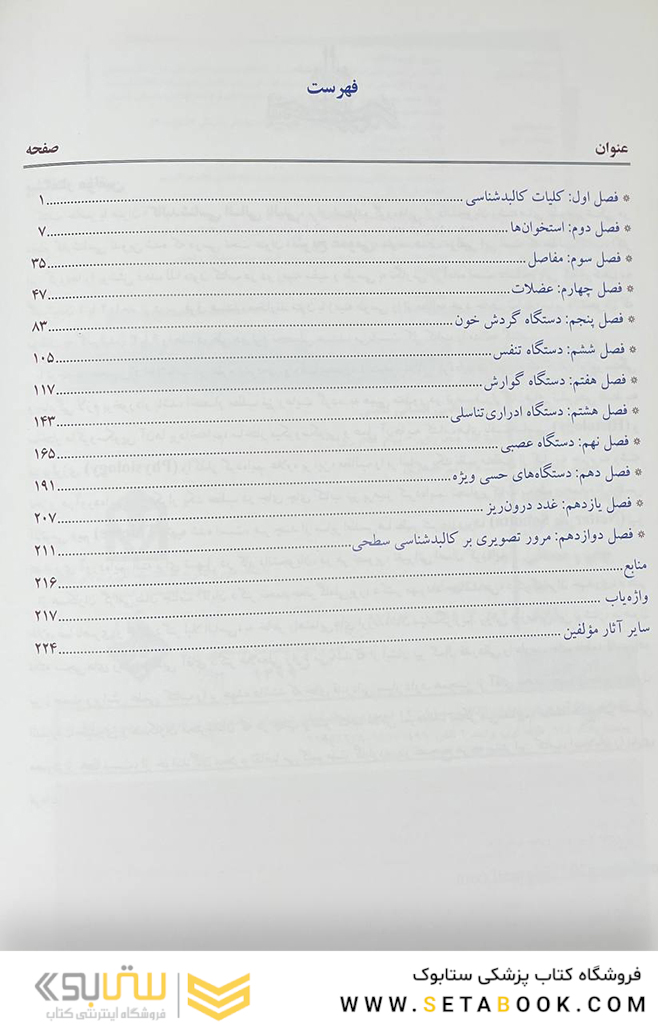 فهرست
عنوان صفحه
* فصل اول: کلیات کالبدشناسی ۱
* فصل دوم: استخوان‌ها ۷
* فصل سوم: مفاصل ۳۵
* فصل چهارم: عضلات ۴۷
* فصل پنجم: دستگاه گردش خون ۸۳
* فصل ششم: دستگاه تنفس ۱۰۵
* فصل هفتم: دستگاه گوارش ۱۱۷
* فصل هشتم: دستگاه ادراری‌تناسلی ۱۴۳
* فصل نهم: دستگاه عصبی ۱۶۵
* فصل دهم: دستگاه‌های حسی ویژه ۱۹۱
* فصل یازدهم: غدد درون‌ریز ۲۰۷
* فصل دوازدهم: مرور تصویری بر کالبدشناسی سطحی ۲۱۱
منابع ۲۱۶
واژه‌یاب ۲۱۷
سایر آثار مؤلفین ۲۲۴
فروشگاه کتاب پزشکی ستابوک
WWW.SETABOOK.COM
ستابوک
فروشگاه اینترنتی کتاب